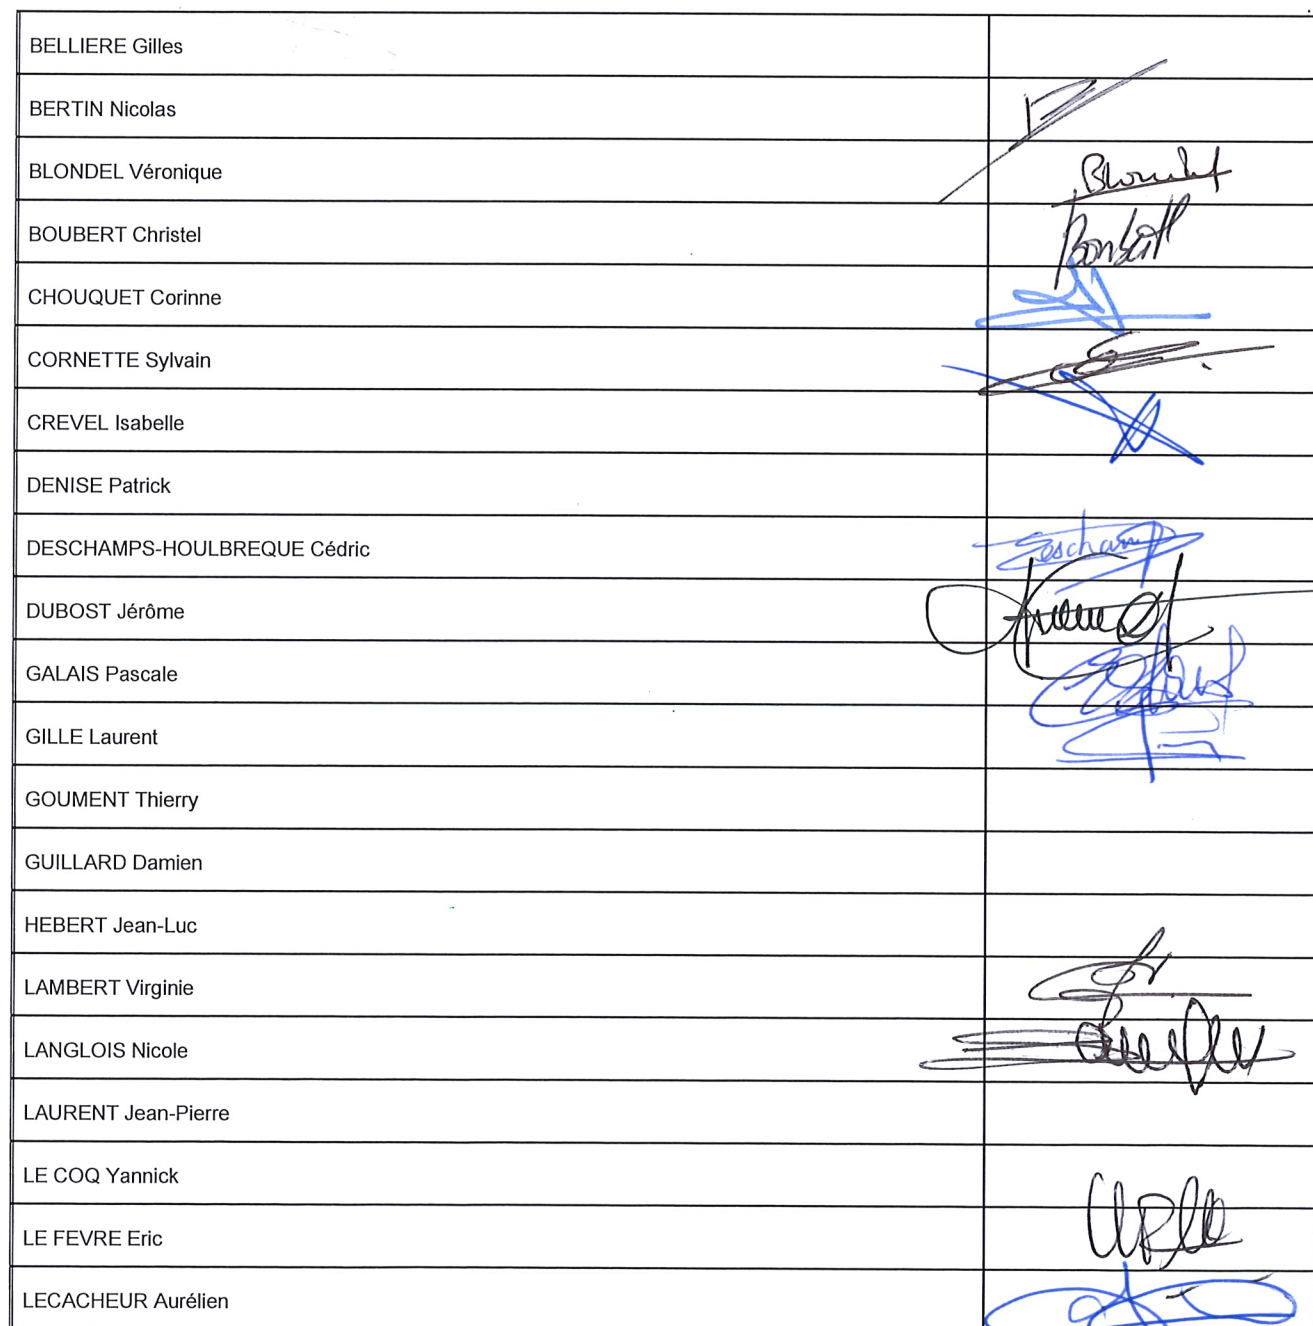 BELLIERE Gilles
BERTIN Nicolas
BLONDEL Véronique
Blondel
BOUBERT Christel
Boubert
CHOUQUET Corinne
CORNETTE Sylvain
CREVEL Isabelle
DENISE Patrick
DESCHAMPS-HOULBREQUE Cédric
Deschamps
DUBOST Jérôme
GALAIS Pascale
GILLE Laurent
GOUMENT Thierry
GUILLARD Damien
HEBERT Jean-Luc
LAMBERT Virginie
LANGLOIS Nicole
LAURENT Jean-Pierre
LE COQ Yannick
LE FEVRE Eric
LECACHEUR Aurélien